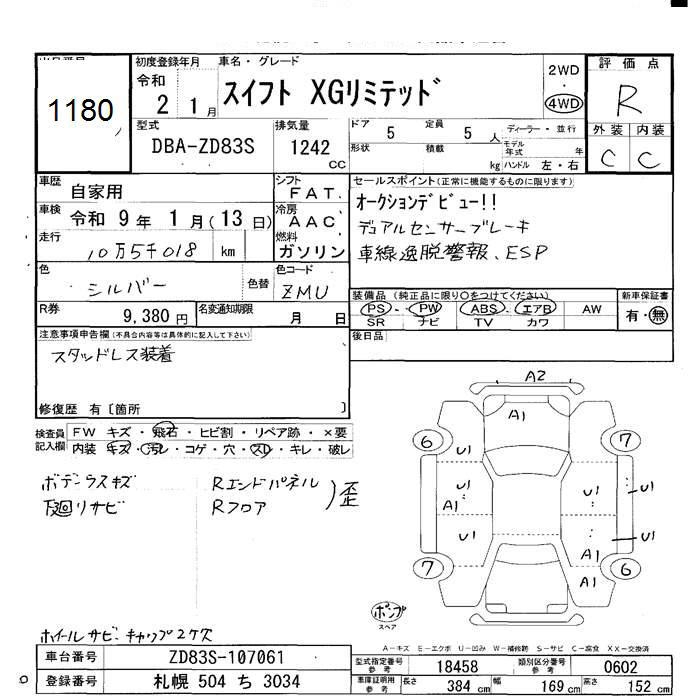 1180
初度登録年月
令和
2 1月
車名・グレード
スイフト XGリミテッド
2WD
・
4WD
評価点
R
外装 内装
C C
型式
DBA-ZD83S
排気量
1242
CC
ドア
5
定員
5 人
形状
積載
kg
ディーラー・並行
モデル年式
年
ハンドル 左・右
車歴
自家用
シフト
FAT.
車検
令和 9年 1月(13日)
冷房
AAC
走行
10万5千018
km
燃料
ガソリン
色
シルバー
色替
色コード
ZMU
R券
9,380円
名変通知期限
月 日
セールスポイント(正常に機能するものに限ります)
オークションデビュー!!
デュアルセンサーブレーキ
車線逸脱警報、ESP
装備品(純正品に限り○をつけてください)
PS・PW ABS・エアB AW
SR ナビ TV カワ
新車保証書
有・無
後日品
注意事項申告欄(不具合内容等は具体的に記入して下さい)
スタッドレス装着
修復歴 有〔箇所 〕
検査員
記入欄
FW キズ・飛石・ヒビ割・リペア跡・×要
内装 キズ・汚レ・コゲ・穴・スレ・キレ・破レ
ボデーラスキズ
下廻リサビ
Rエンドパネル
Rフロア
歪
ホイールサビ キャップ2ケ欠
A2
A1
6
7
U1
U1
U1
A1
U1
U1
U1
A1
7
A1
6
ポンプ
スペア
A-キズ E-エクボ U-凹み W-補修跡 S-サビ C-腐食 XX-交換済
車台番号
ZD83S-107061
登録番号
札幌 504 ち 3034
型式指定番号
参考
18458
類別区分番号
参考
0602
車庫証明用
参考
長さ 384 cm 幅 169 cm 高さ 152 cm